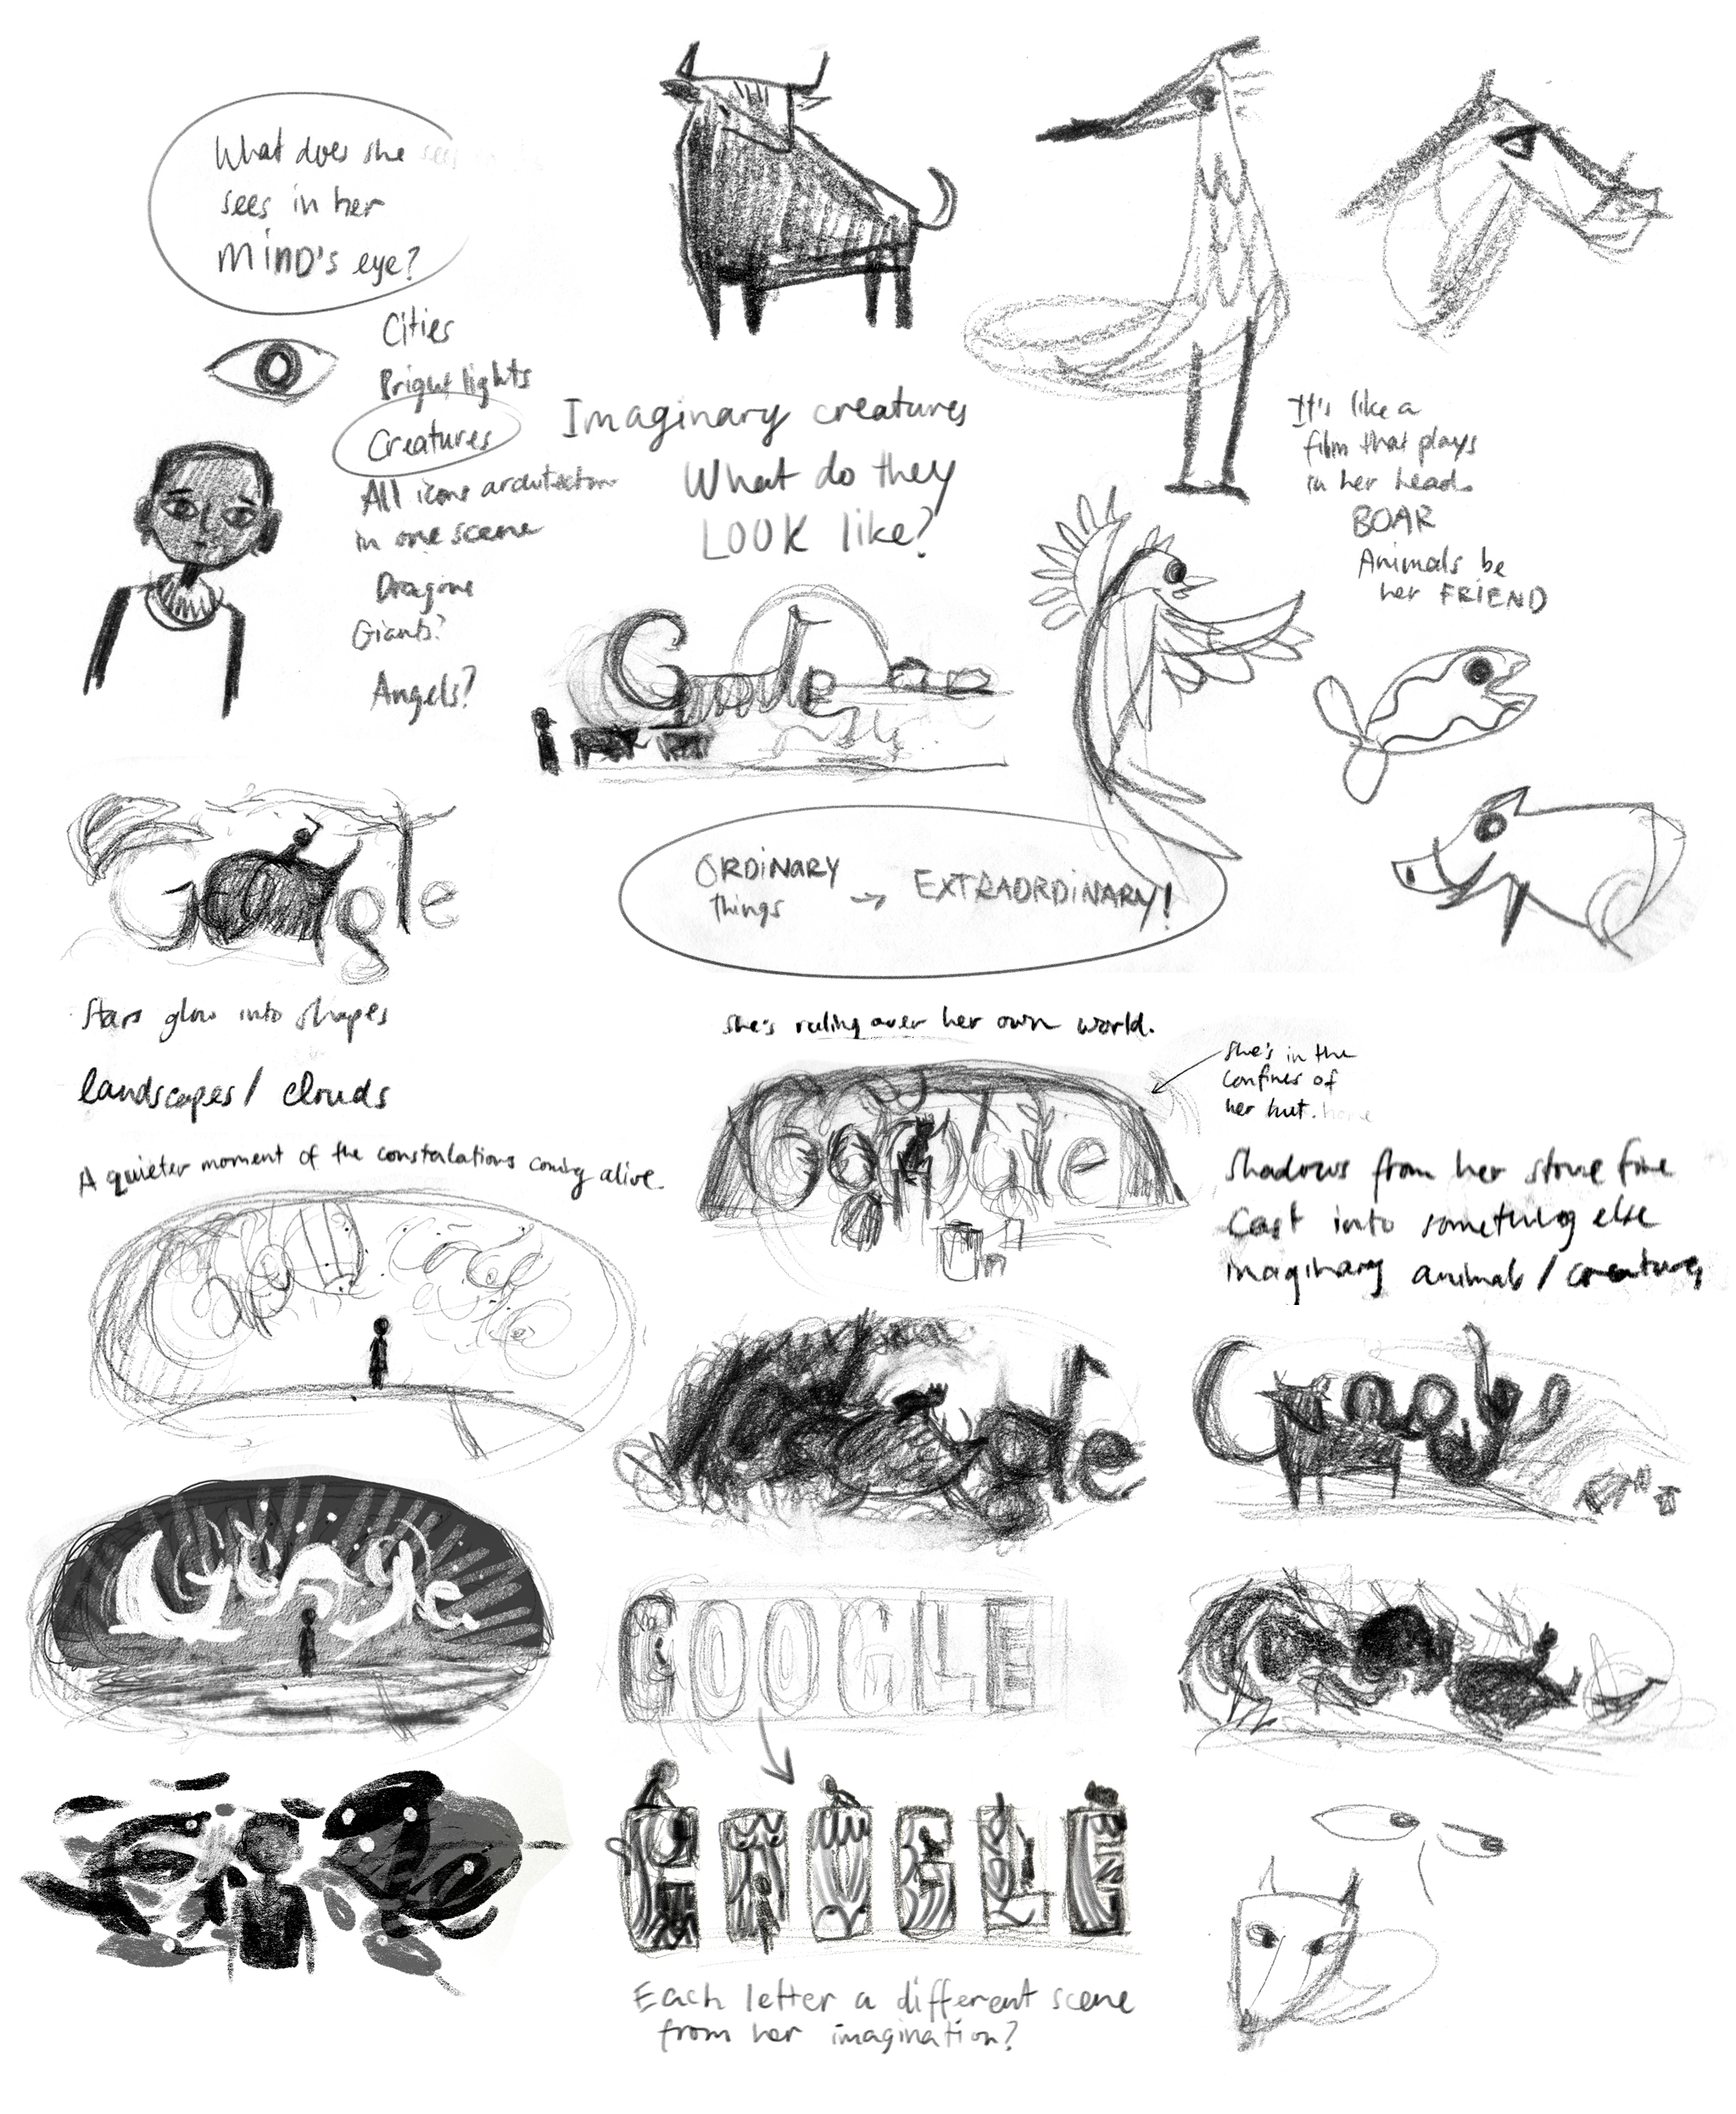 What does she see
sees in her
MiND's eye?
Cities
Bright lights
Creatures
All icons architecture
in one scene
Dragons
Giants?
Angels?
Imaginary creatures
What do they
LOOK like?
It's like a
film that plays
in her head.
BOAR
Animals be
her FRiEND
Google
Google
ORDiNARY
things
→ EXTRAORDiNARY!
Stars glow into shapes
landscapes / clouds
A quieter moment of the constalations coming alive.
She's ruling over her own world.
She's in the
confines of
her hut. home
Shadows from her stove fire
Cast into something else
imaginary animals / creatures
Google
Google
Google
Google
GOOGLE
Each letter a different scene
from her imagination?